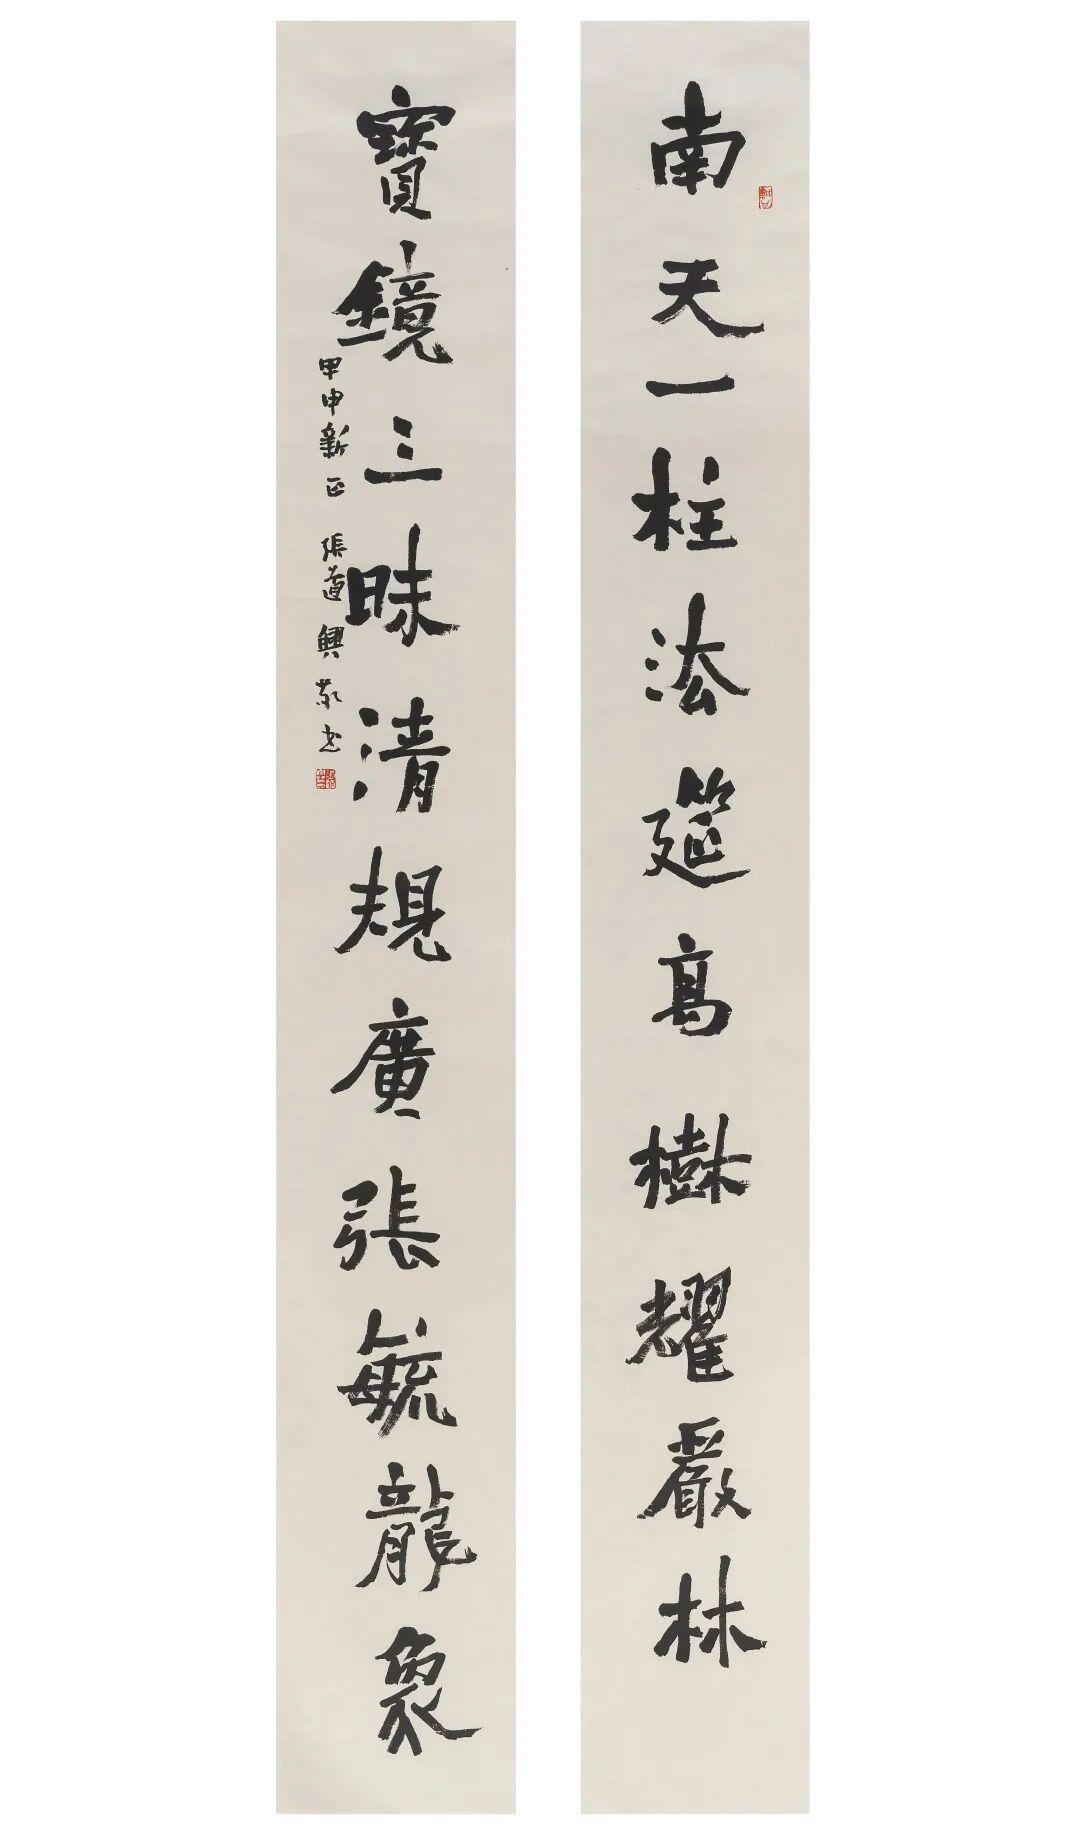 南天一柱法筵高樹耀嚴林
寶鏡三昧清規廣張毓龍象
甲申新正 張道興敬書